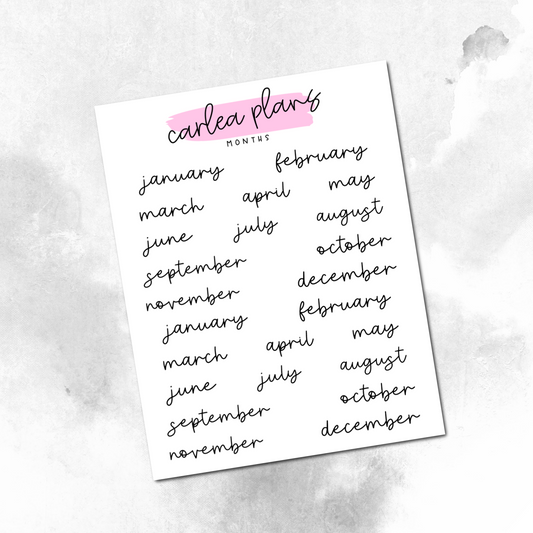 carlea plans
MONTHS
january february
march april may
june july august
september october
november december
january february
march april may
june july august
september october
november december